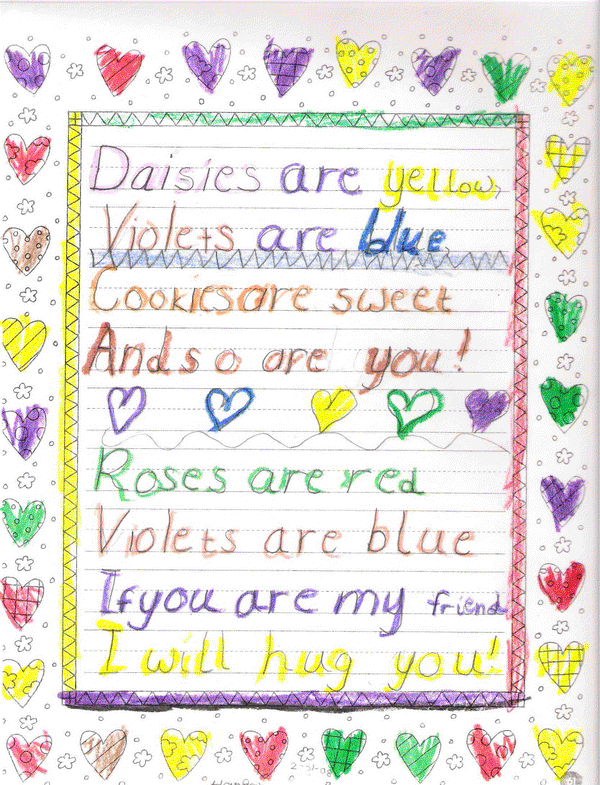 Daisies are yellow,
Violets are blue,
Cookies are sweet
And so are you!
Roses are red
Violets are blue
If you are my friend
I will hug you!